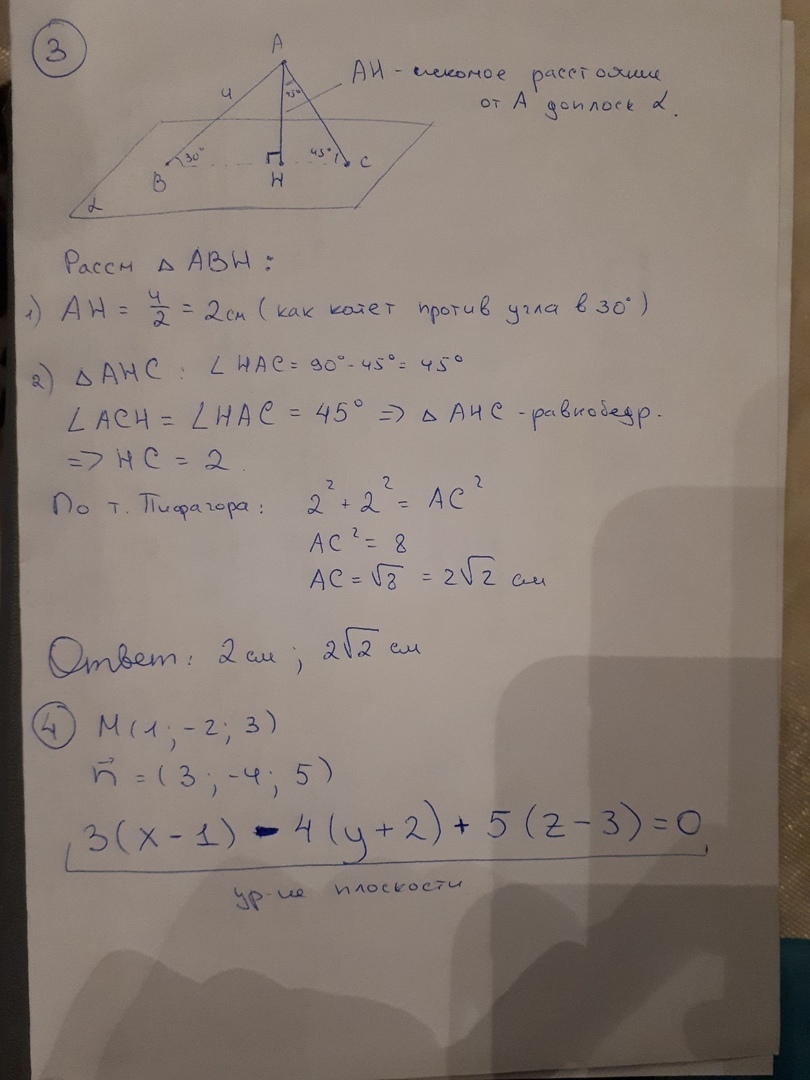 3
A
4
45°
AH - искомое расстояние
от A до плоск α.
30°
45°
B
H
C
α
Рассм △ ABH:
1) AH = 4/2 = 2см (как катет против угла в 30°)
2) △ AHC: ∠HAC = 90° - 45° = 45°
∠ACH = ∠HAC = 45° => △ AHC - равнобедр.
=> HC = 2.
По т. Пифагора: 2² + 2² = AC²
AC² = 8
AC = √8 = 2√2 см
Ответ: 2см; 2√2 см
4 M(1; -2; 3)
n⃗ = (3; -4; 5)
3(x-1) - 4(y+2) + 5(z-3) = 0
ур-ие плоскости